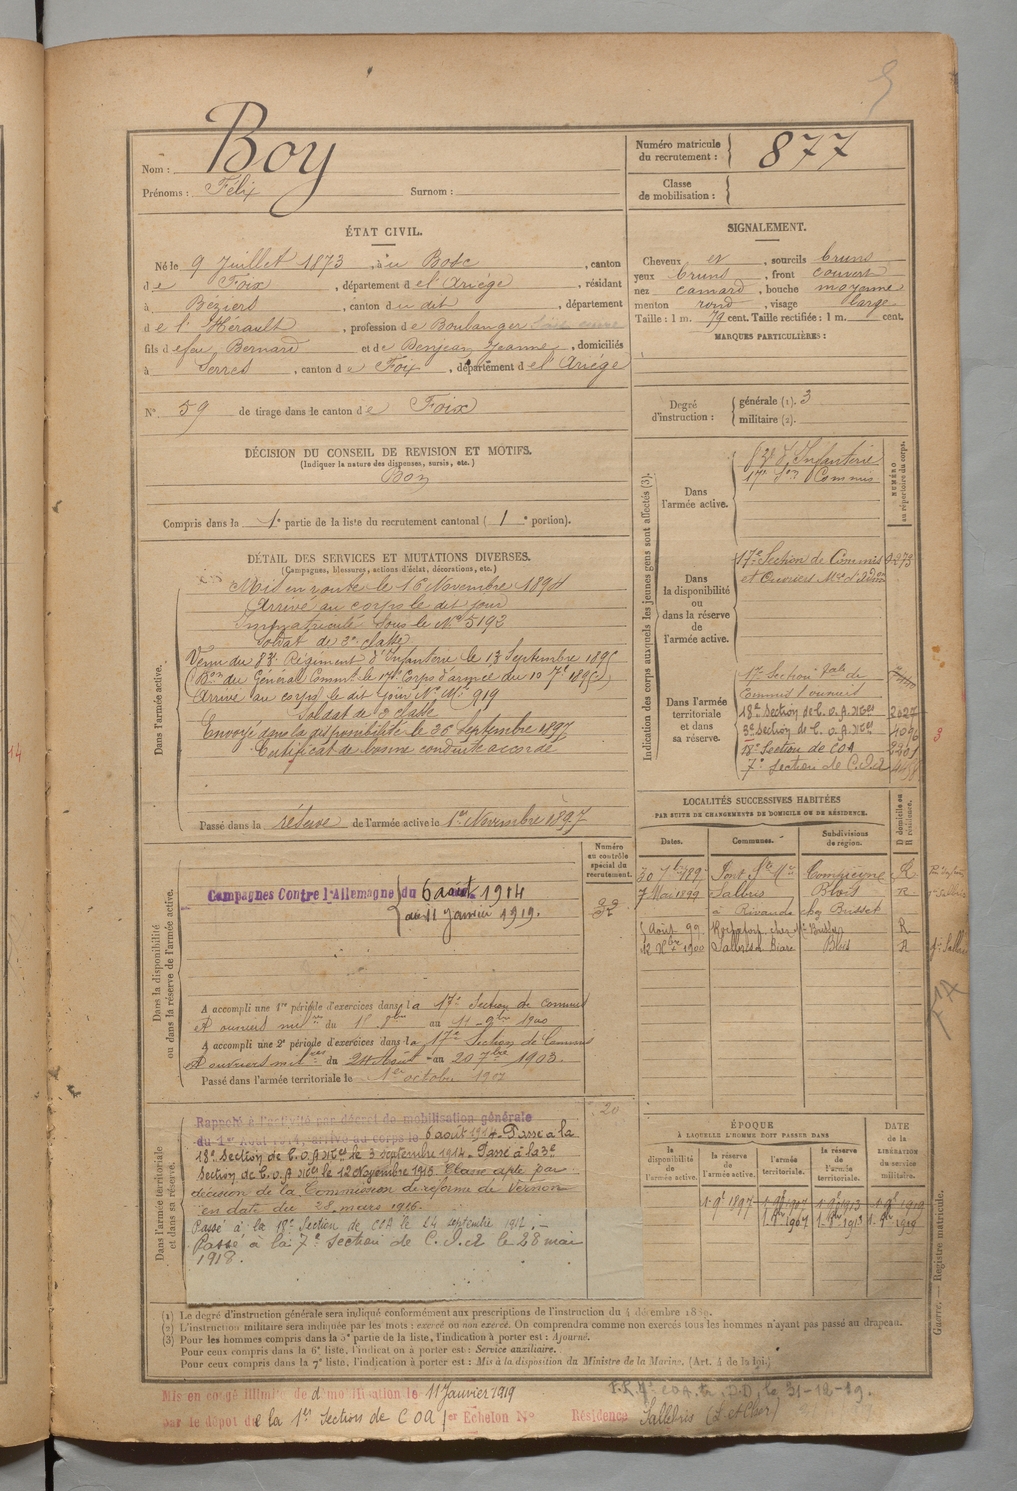 Boy
Nom :
Prénoms : Félix Surnom :
Numéro matricule du recrutement : 877
Classe de mobilisation :
ÉTAT CIVIL.
Né le 9 Juillet 1873, à u Bosc, canton
de Foix, département de l'Ariège, résidant
à Béziers, canton du dit, département
de l'Hérault, profession de Boulanger
fils de feu Bernard et de Benjean Jeanne, domiciliés
à Serres, canton de Foix, département de l'Ariège
N° 59 de tirage dans le canton de Foix
SIGNALEMENT.
Cheveux et, sourcils bruns
yeux bruns, front couvert
nez camard, bouche moyenne
menton rond, visage large
Taille : 1 m. 79 cent. Taille rectifiée : 1 m. cent.
MARQUES PARTICULIÈRES :
Degré d'instruction : générale (1). 3
militaire (2).
DÉCISION DU CONSEIL DE REVISION ET MOTIFS.
(Indiquer la nature des dispenses, sursis, etc.)
Bon
Compris dans la 1e partie de la liste du recrutement cantonal ( 1e portion).
DÉTAIL DES SERVICES ET MUTATIONS DIVERSES.
(Campagnes, blessures, actions d'éclat, décorations, etc.)
Dans l'armée active.
Mis en route le 16 Novembre 1894
Arrivé au corps le dit jour
Immatriculé sous le N° 5192
Soldat de 2e classe
Venu du 83e Régiment d'Infanterie le 13 Septembre 1895
(Bon du Général Commt le 17e Corps d'armée du 10 7bre 1895)
Arrivé au corps le dit jour N° Mle 919
Soldat de 2 classe
Envoyé dans la disponibilité le 26 Septembre 1897
Certificat de bonne conduite accordé
Passé dans la réserve de l'armée active le 1er Novembre 1897
Indication des corps auxquels les jeunes gens sont affectés (3).
NUMÉRO au répertoire du corps.
Dans l'armée active.
83e d'Infanterie
17e Son Commis
Dans la disponibilité ou dans la réserve de l'armée active.
17e Section de Commis
et Ouvriers Mres d'Adon
Dans l'armée territoriale et dans sa réserve.
17e Section
Commis & ouvriers
18e Section de C. O. A. Mres 2027
3e Section de C. O. A. Mres 4096
18e Section de COA
7e Section de C.O.A
Dans la disponibilité ou dans la réserve de l'armée active.
Numéro au contrôle spécial du recrutement.
Campagnes Contre l'Allemagne du 6 août 1914
au 11 Janvier 1919.
A accompli une 1re période d'exercices dans la 17e Section de commis
et ouvriers mres du au 1900
A accompli une 2e période d'exercices dans la 17e Section de Commis
et ouvriers milres du 24 Août au 20 7bre 1903
Passé dans l'armée territoriale le 1er octobre 1907
LOCALITÉS SUCCESSIVES HABITÉES
PAR SUITE DE CHANGEMENTS DE DOMICILE OU DE RÉSIDENCE.
Dates. Communes. Subdivisions de région. D domicile ou R résidence.
Pont Ste Mce Compiègne R
7 Mai 1899 Salbris Blois R
Blois R
Dans l'armée territoriale et dans sa réserve.
Rappelé à l'activité par décret de mobilisation générale
du 1er Août 1914, arrivé au corps le 6 août 1914. Passé à la
18e Section de C.O.A Mres le 3 septembre 1914. Passé à la 3e
Section de C.O.A Mres le 12 Novembre 1915. Classé apte par
décision de la Commission de réforme de Vernon
en date du 28 mars 1916.
Passé à la 18e Section de COA le 24 septembre
Passé à la 7e Section de C.O.A le 28 mai
1918.
ÉPOQUE
À LAQUELLE L'HOMME DOIT PASSER DANS
la disponibilité de l'armée active. la réserve de l'armée active. l'armée territoriale. la réserve de l'armée territoriale.
DATE de la LIBÉRATION du service militaire.
1 9bre 1897 1 9bre 1907 1 9bre 1913 1 9bre 1919
1 8bre 1907 1 8bre 1913 1 8bre 1919
(1) Le degré d'instruction générale sera indiqué conformément aux prescriptions de l'instruction du 4 décembre 1889.
(2) L'instruction militaire sera indiquée par les mots : exercé ou non exercé. On comprendra comme non exercés tous les hommes n'ayant pas passé au drapeau.
(3) Pour les hommes compris dans la 5e partie de la liste, l'indication à porter est : Ajourné.
Pour ceux compris dans la 6e liste, l'indication à porter est : Service auxiliaire.
Pour ceux compris dans la 7e liste, l'indication à porter est : Mis à la disposition du Ministre de la Marine. (Art. 4 de la loi.)
Guerre. — Registre matricule.
Mis en congé illimité de démobilisation le 11 Janvier 1919
par le dépôt de la 1re Section de COA 1er Echelon N° Résidence Salbris (L-et-Cher)
31-12-19.